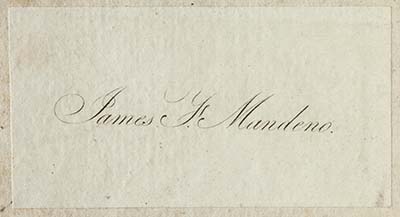 James. F. Mandeno.